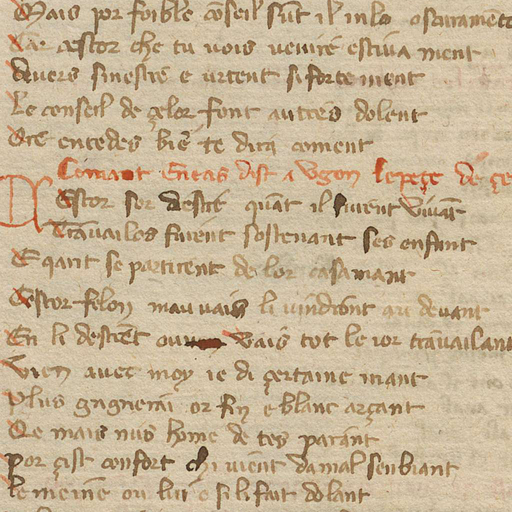 Mais por foible conseil sunt il in la oscurament
Car cestor che tu vois venire estiva ment
Avers sinestre e urtent si forte ment
Le conseil de çelor font autres dolent
Ore entedes bien te dira coment
Comant Eneas dist a Ugon le peçe de
Estor ser destre quant il furent vivant
Travailos furent sostenant ses enfant
E qant se partirent de lor casamant
Cestor felon mauvais li vindront qui devant
En li destrent vais tot le ior travailant
Vien avec moy ie di çertaine mant
Plus gagnerai or fin e blanc arçant
Qe mais nus home de tes parant
Por çist confort chi vient da mal senbiant
le meine ou lui e si li fait dolant